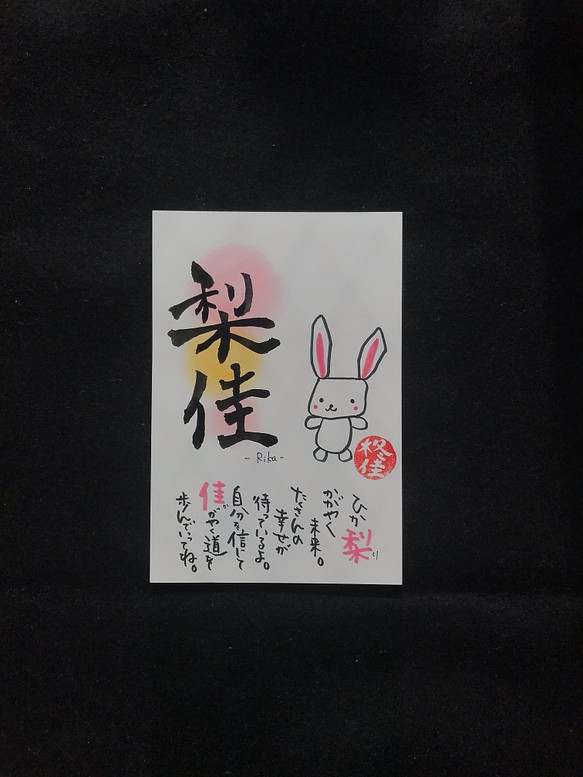 梨佳
- Rika -
ひか梨り
かがやく
未来。
たくさんの
幸せが
待っているよ。
自分を信じて
佳がやく道を
歩んでいってね。